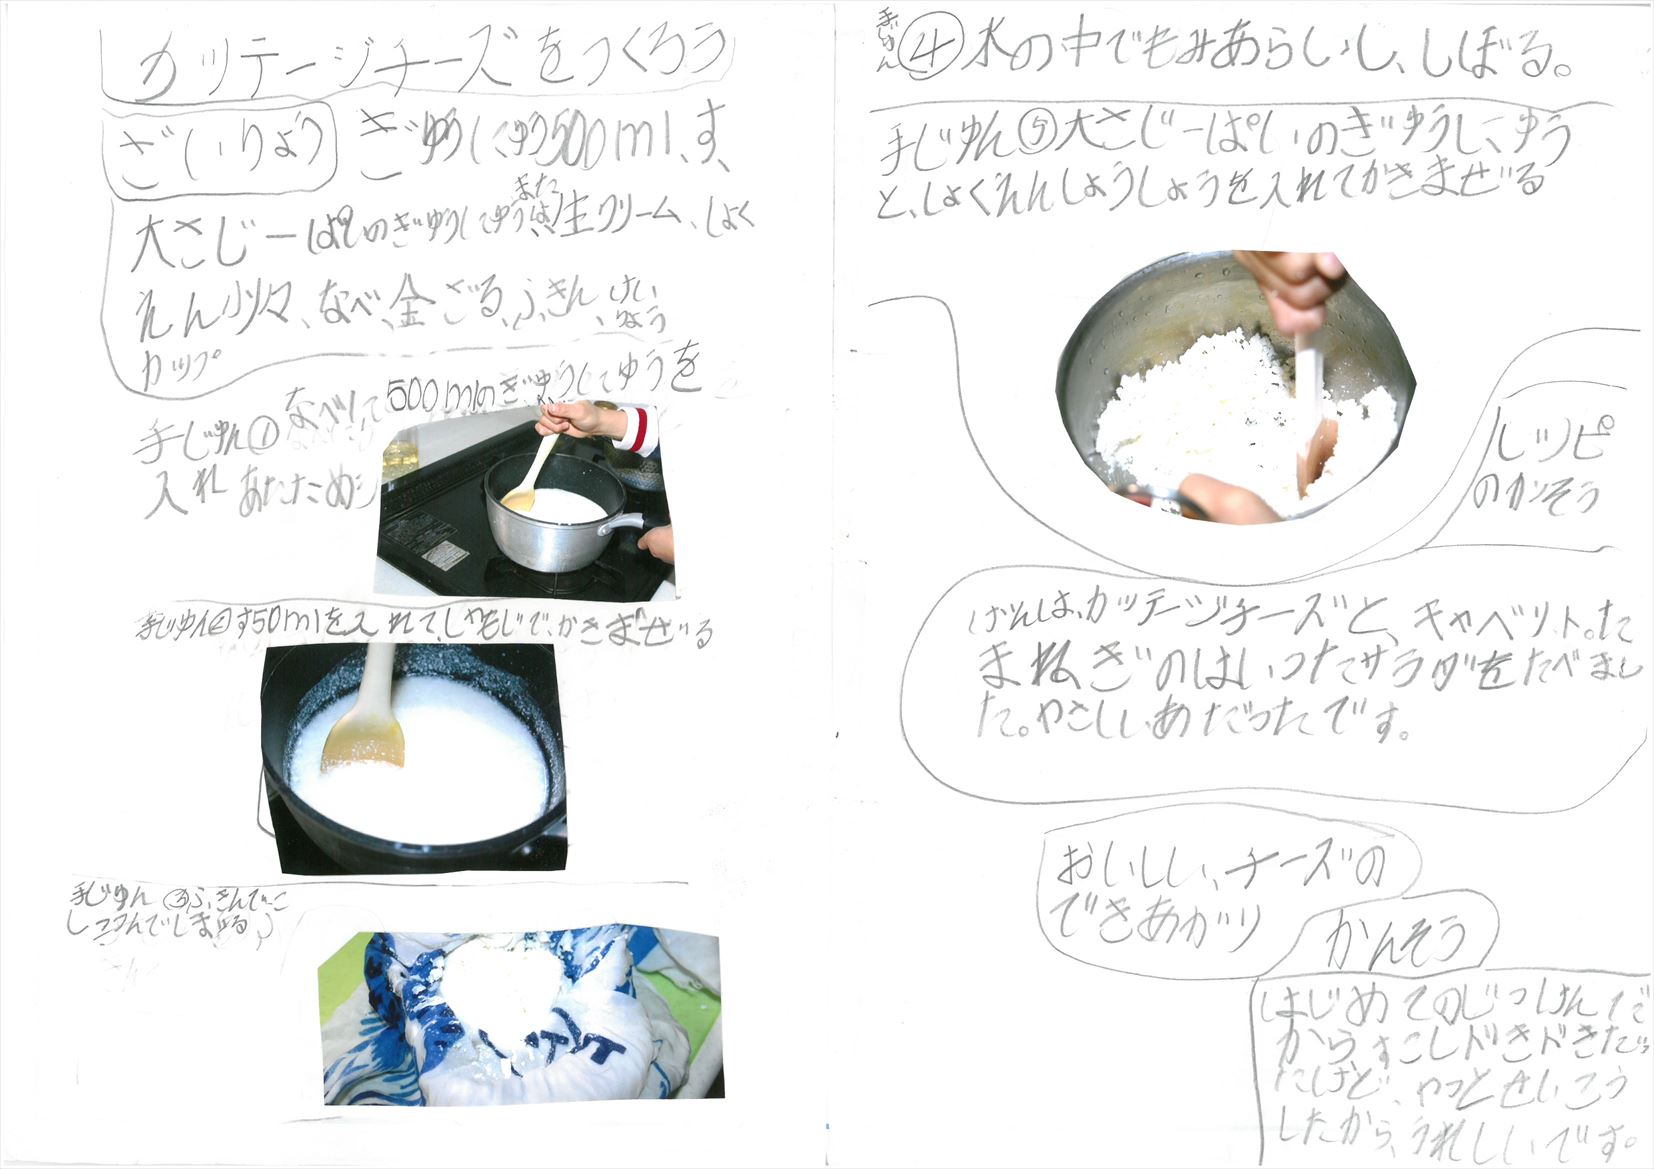 カッテージチーズをつくろう
ざいりょう ぎゅうにゅう500ml、す、
大さじーぱいのぎゅうにゅう、または生クリーム、しょく
えん少々、なべ、金ざる、ふきん、けいりょう
カップ
手じゅん① なべに500mlのぎゅうにゅうを
入れ あたため
手じゅん② す50mlを入れて、しゃもじで、かきまぜる
手じゅん ③ふきんでこ
手じゅん④水の中でもみあらいし、しぼる。
手じゅん⑤大さじーぱいのぎゅうにゅう
と、しょくえんしょうしょうを入れてかきまぜる
レシピ
のかそう
けんは、カッテージチーズと、キャベツ、ト。た
まねぎのはいったサラダをたべまし
た。やさしいあじだったです。
おいしい、チーズの
できあがり
かんそう
はじめてのじっけんだ
から、すこしドきドきだっ
たけど、やっとせいこう
したから、うれしいです。